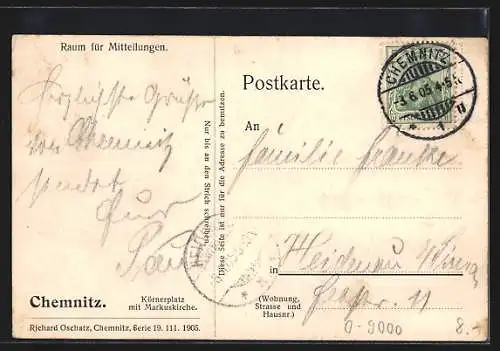 Raum für Mitteilungen.
Herzlichste Grüße
von Chemnitz
sendet
Euer
Paul
Chemnitz.
Körnerplatz
mit Markuskirche.
Richard Oschatz, Chemnitz, Serie 19. 111. 1905.
Nur bis an den Strich schreiben.
Diese Seite ist nur für die Adresse zu benutzen.
Postkarte.
CHEMNITZ
-3.6.05.4-5N
* 1 u
An
Familie Franke
in
(Wohnung,
Strasse und
Hausnr.)
11
a-9000
8.-